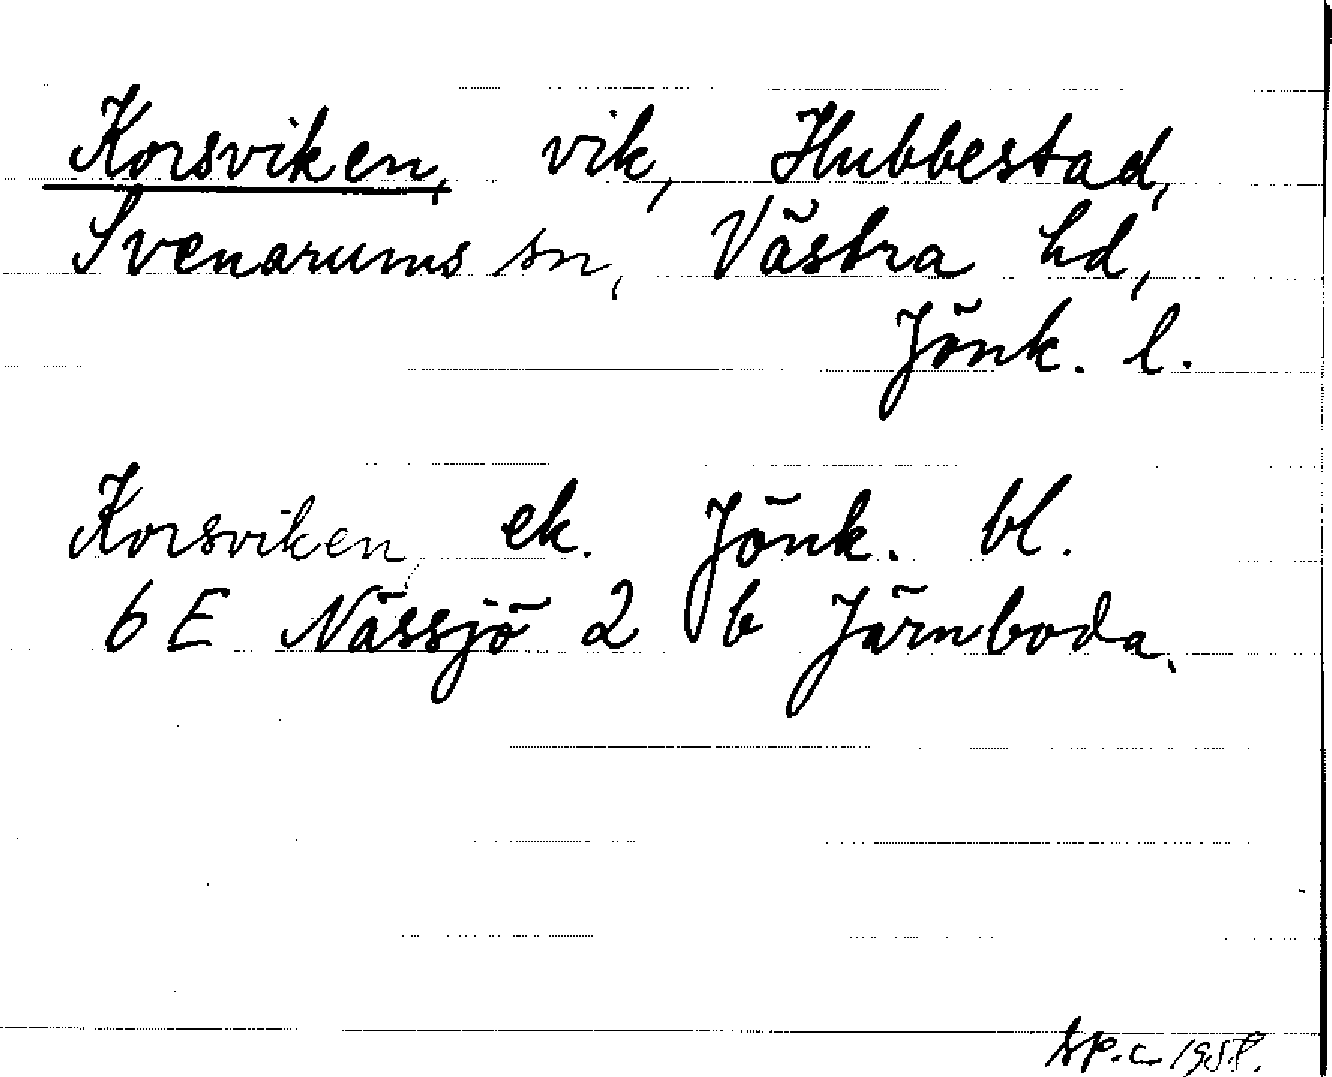 Korsviken, vik, Hubbestad,
Svenarums sn, Västra hd,
Jönk. l.
Korsviken, ek. Jönk. bl.
6 E Nässjö 2 b Järnboda.
1958.